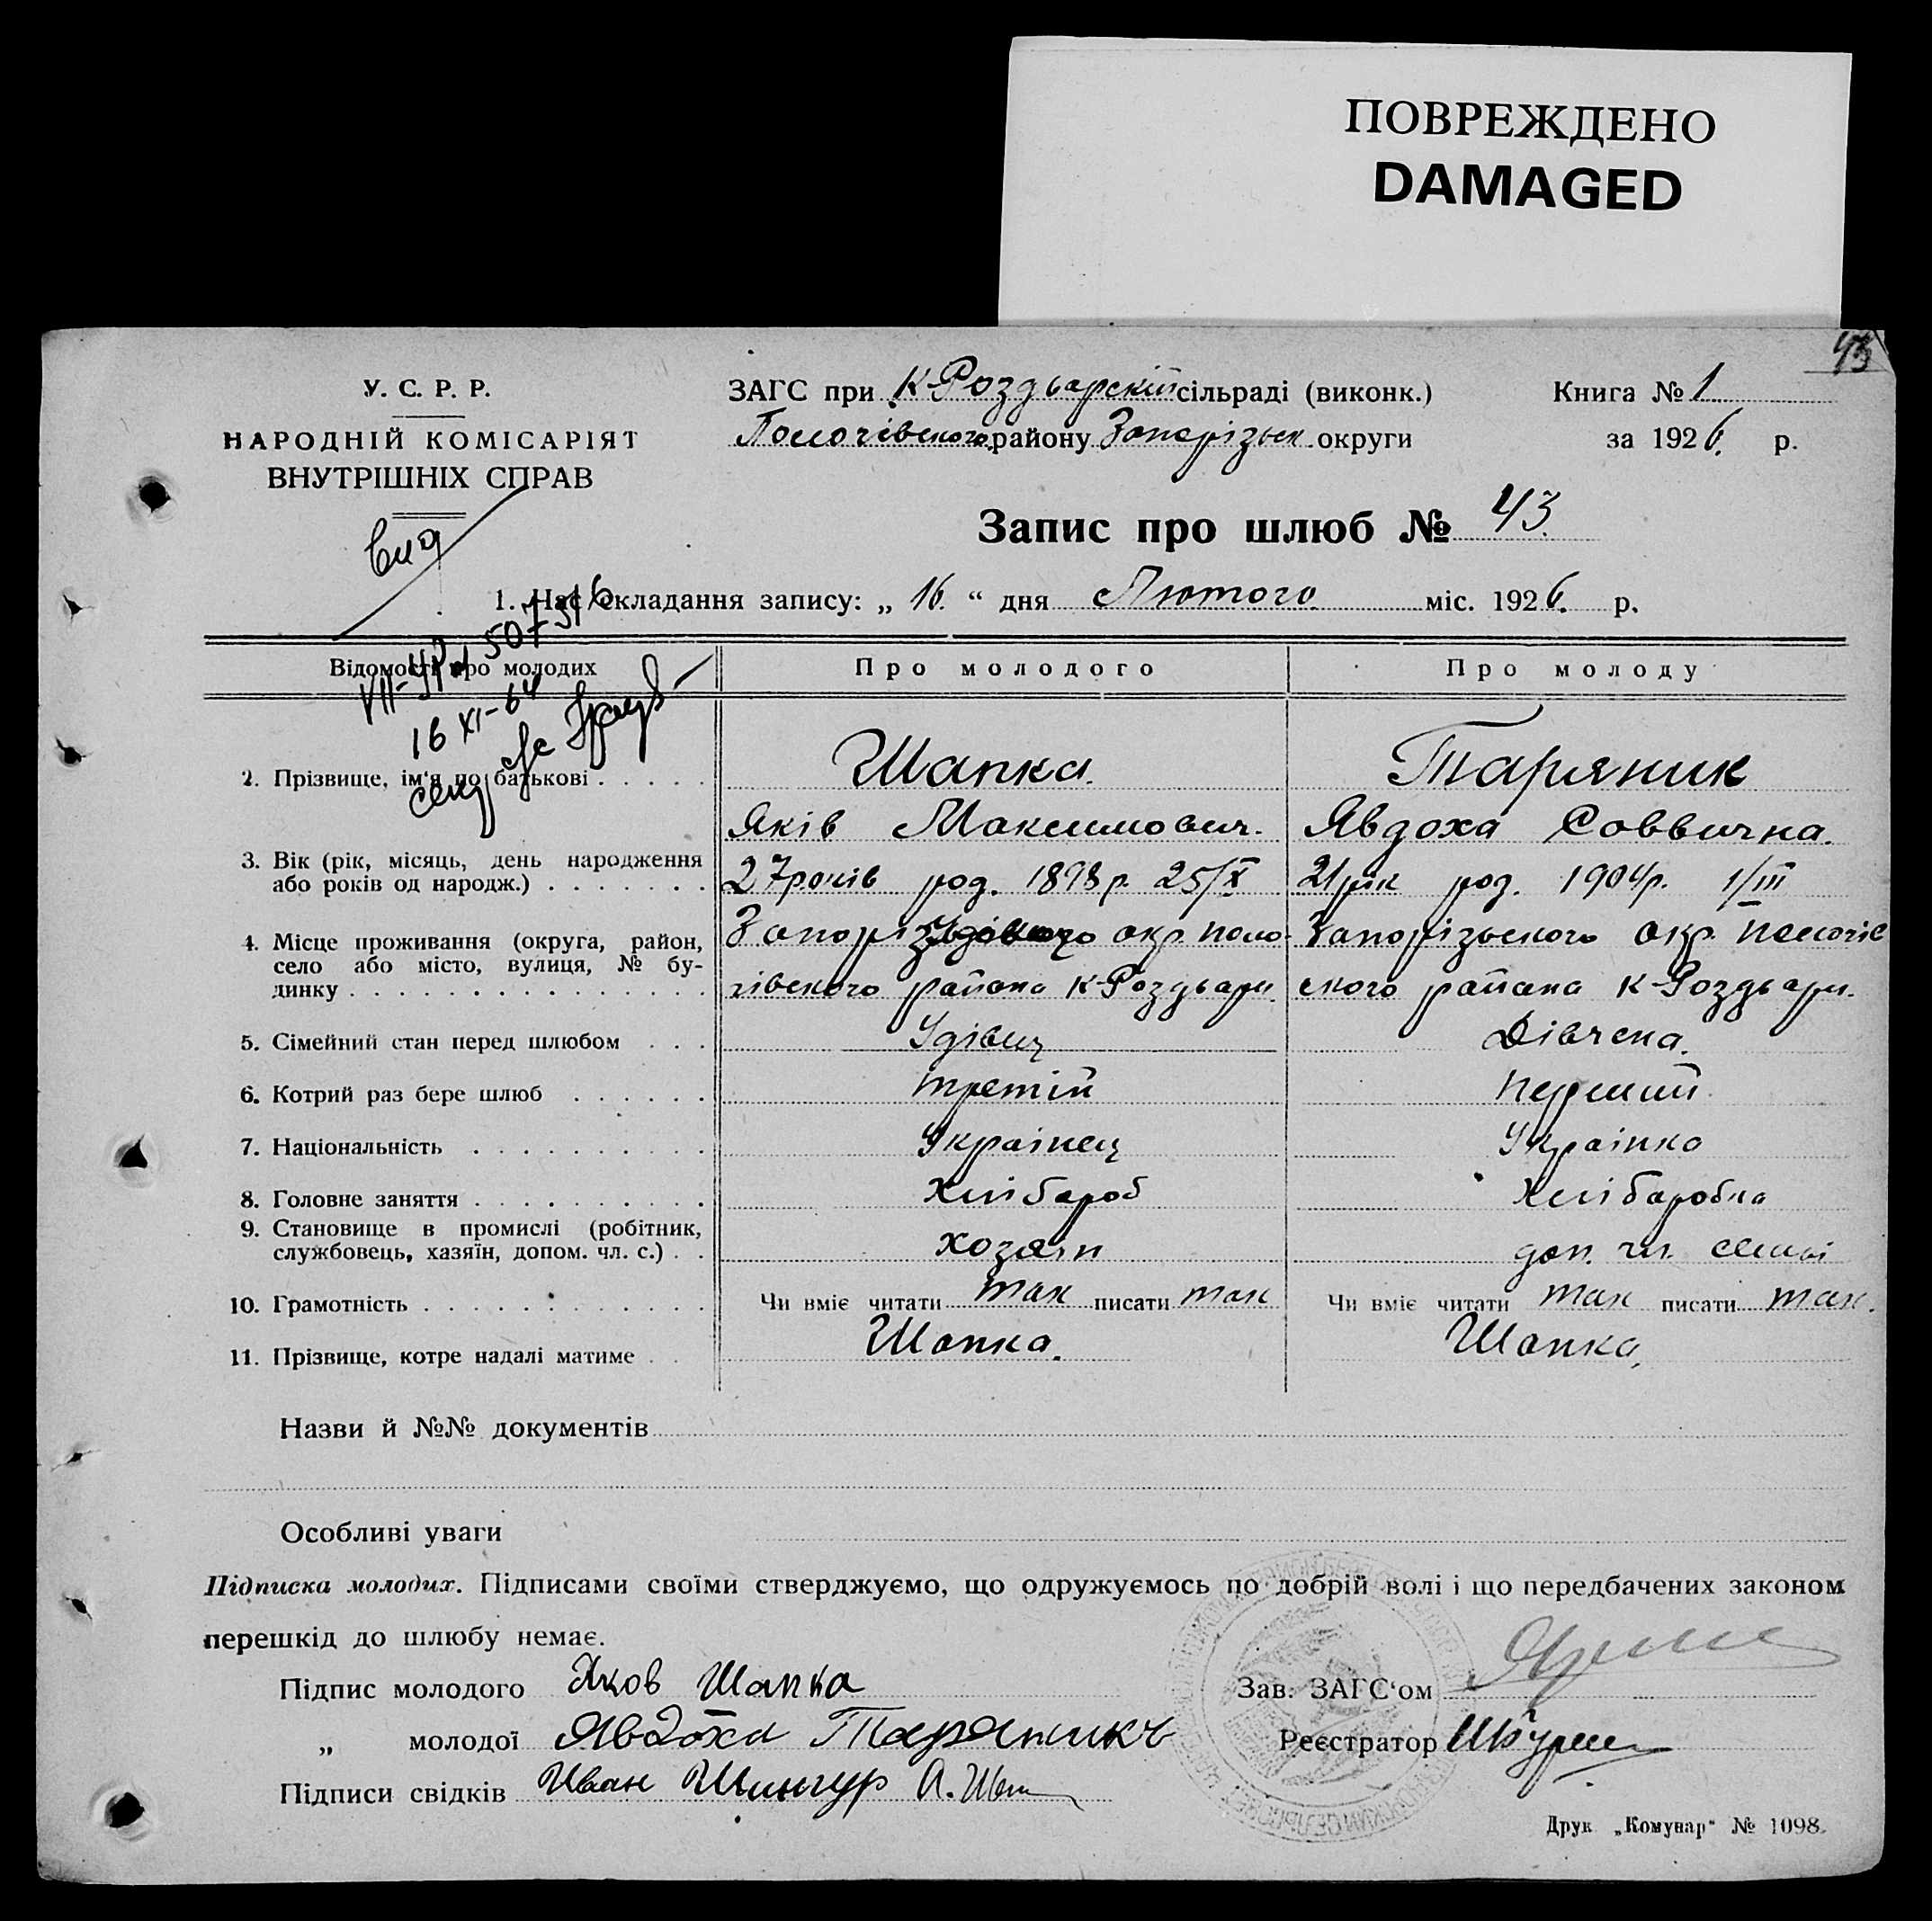 ПОВРЕЖДЕНО
DAMAGED
43
У. С. Р. Р.
НАРОДНІЙ КОМІСАРІЯТ
ВНУТРІШНІХ СПРАВ
ЗАГС при К-Роздьарскій сільраді (виконк.)
Пологівського району Запорізьк. округи
Книга № 1
за 1926. р.
Запис про шлюб № 43.
1. Час складання запису: „ 16. “ дня Лютого міс. 1926. р.
16 XI-64
Відомості про молодих
Про молодого
Про молоду
2. Прізвище, ім'я по батькові
Шапка.
Яків Максимович.
Таряник
Явдоха Соввична.
3. Вік (рік, місяць, день народження
або років од народж.)
27 років род. 1898 р. 25/X
21 рік род. 1904 р. 1/III
4. Місце проживання (округа, район,
село або місто, вулиця, № бу-
динку
окр. Поло-
гівского района К-Роздьари.
Запорізьского окр. Пологів
ского района К-Роздьари.
5. Сімейний стан перед шлюбом
Удівец
Дівчена.
6. Котрий раз бере шлюб
третій
Перший
7. Національність
Українец
Українка
8. Головне заняття
Хлібароб
Хлібаробка
9. Становище в промислі (робітник,
службовець, хазяїн, допом. чл. с.)
хозяин
доп. чл. семьі
10. Грамотність
Чи вміє читати так писати так
Чи вміє читати так писати так.
11. Прізвище, котре надалі матиме
Шапка.
Шапка.
Назви й №№ документів
Особливі уваги
Підписка молодих. Підписами своїми стверджуємо, що одружуємось по добрій волі і що передбачених законом
перешкід до шлюбу немає.
Підпис молодого Яков Шапка
„ молодої Явдоха Таряникъ
Підписи свідків Иван Шингур А.
Зав. ЗАГС‘ом
Реєстратор
Друк „Комунар“ № 1098.